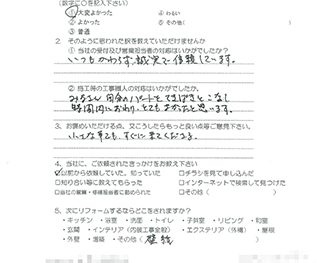 (数字に○を記入下さい)
① 大変よかった ④ わるい
② よかった ⑤ その他( )
③ 普通
2. そのように思われた訳を教えていただけませんか
① 当社の受付及び営業担当者の対応はいかがでしたか?
いつもかわらず、誠実で信頼しています。
② 施工時の工事職人の対応はいかがでしたか?
みなさん 自分のパートを てきぱきとこなし
時間内におわり、とてもよかったと思います。
3. お褒めいただける点、又こうしたらもっと良い点等ご意見下さい。
小さな事でも、すぐに来てくださる。
4. 当社に、ご依頼されたきっかけをお教え下さい
☑以前から依頼していた、知っていた □チラシを見て申し込んだ
□知り合い等に教えてもらった □インターネットで検索して見つけた
□その他( )
5. 次にリフォームするならどこをされますか?
・キッチン ・浴室 ・洗面 ・トイレ ・子供室 ・リビング ・和室
・玄関 ・インテリア(内装工事全般) ・エクステリア(外構) ・屋根
・外壁 ・増築 ・その他(